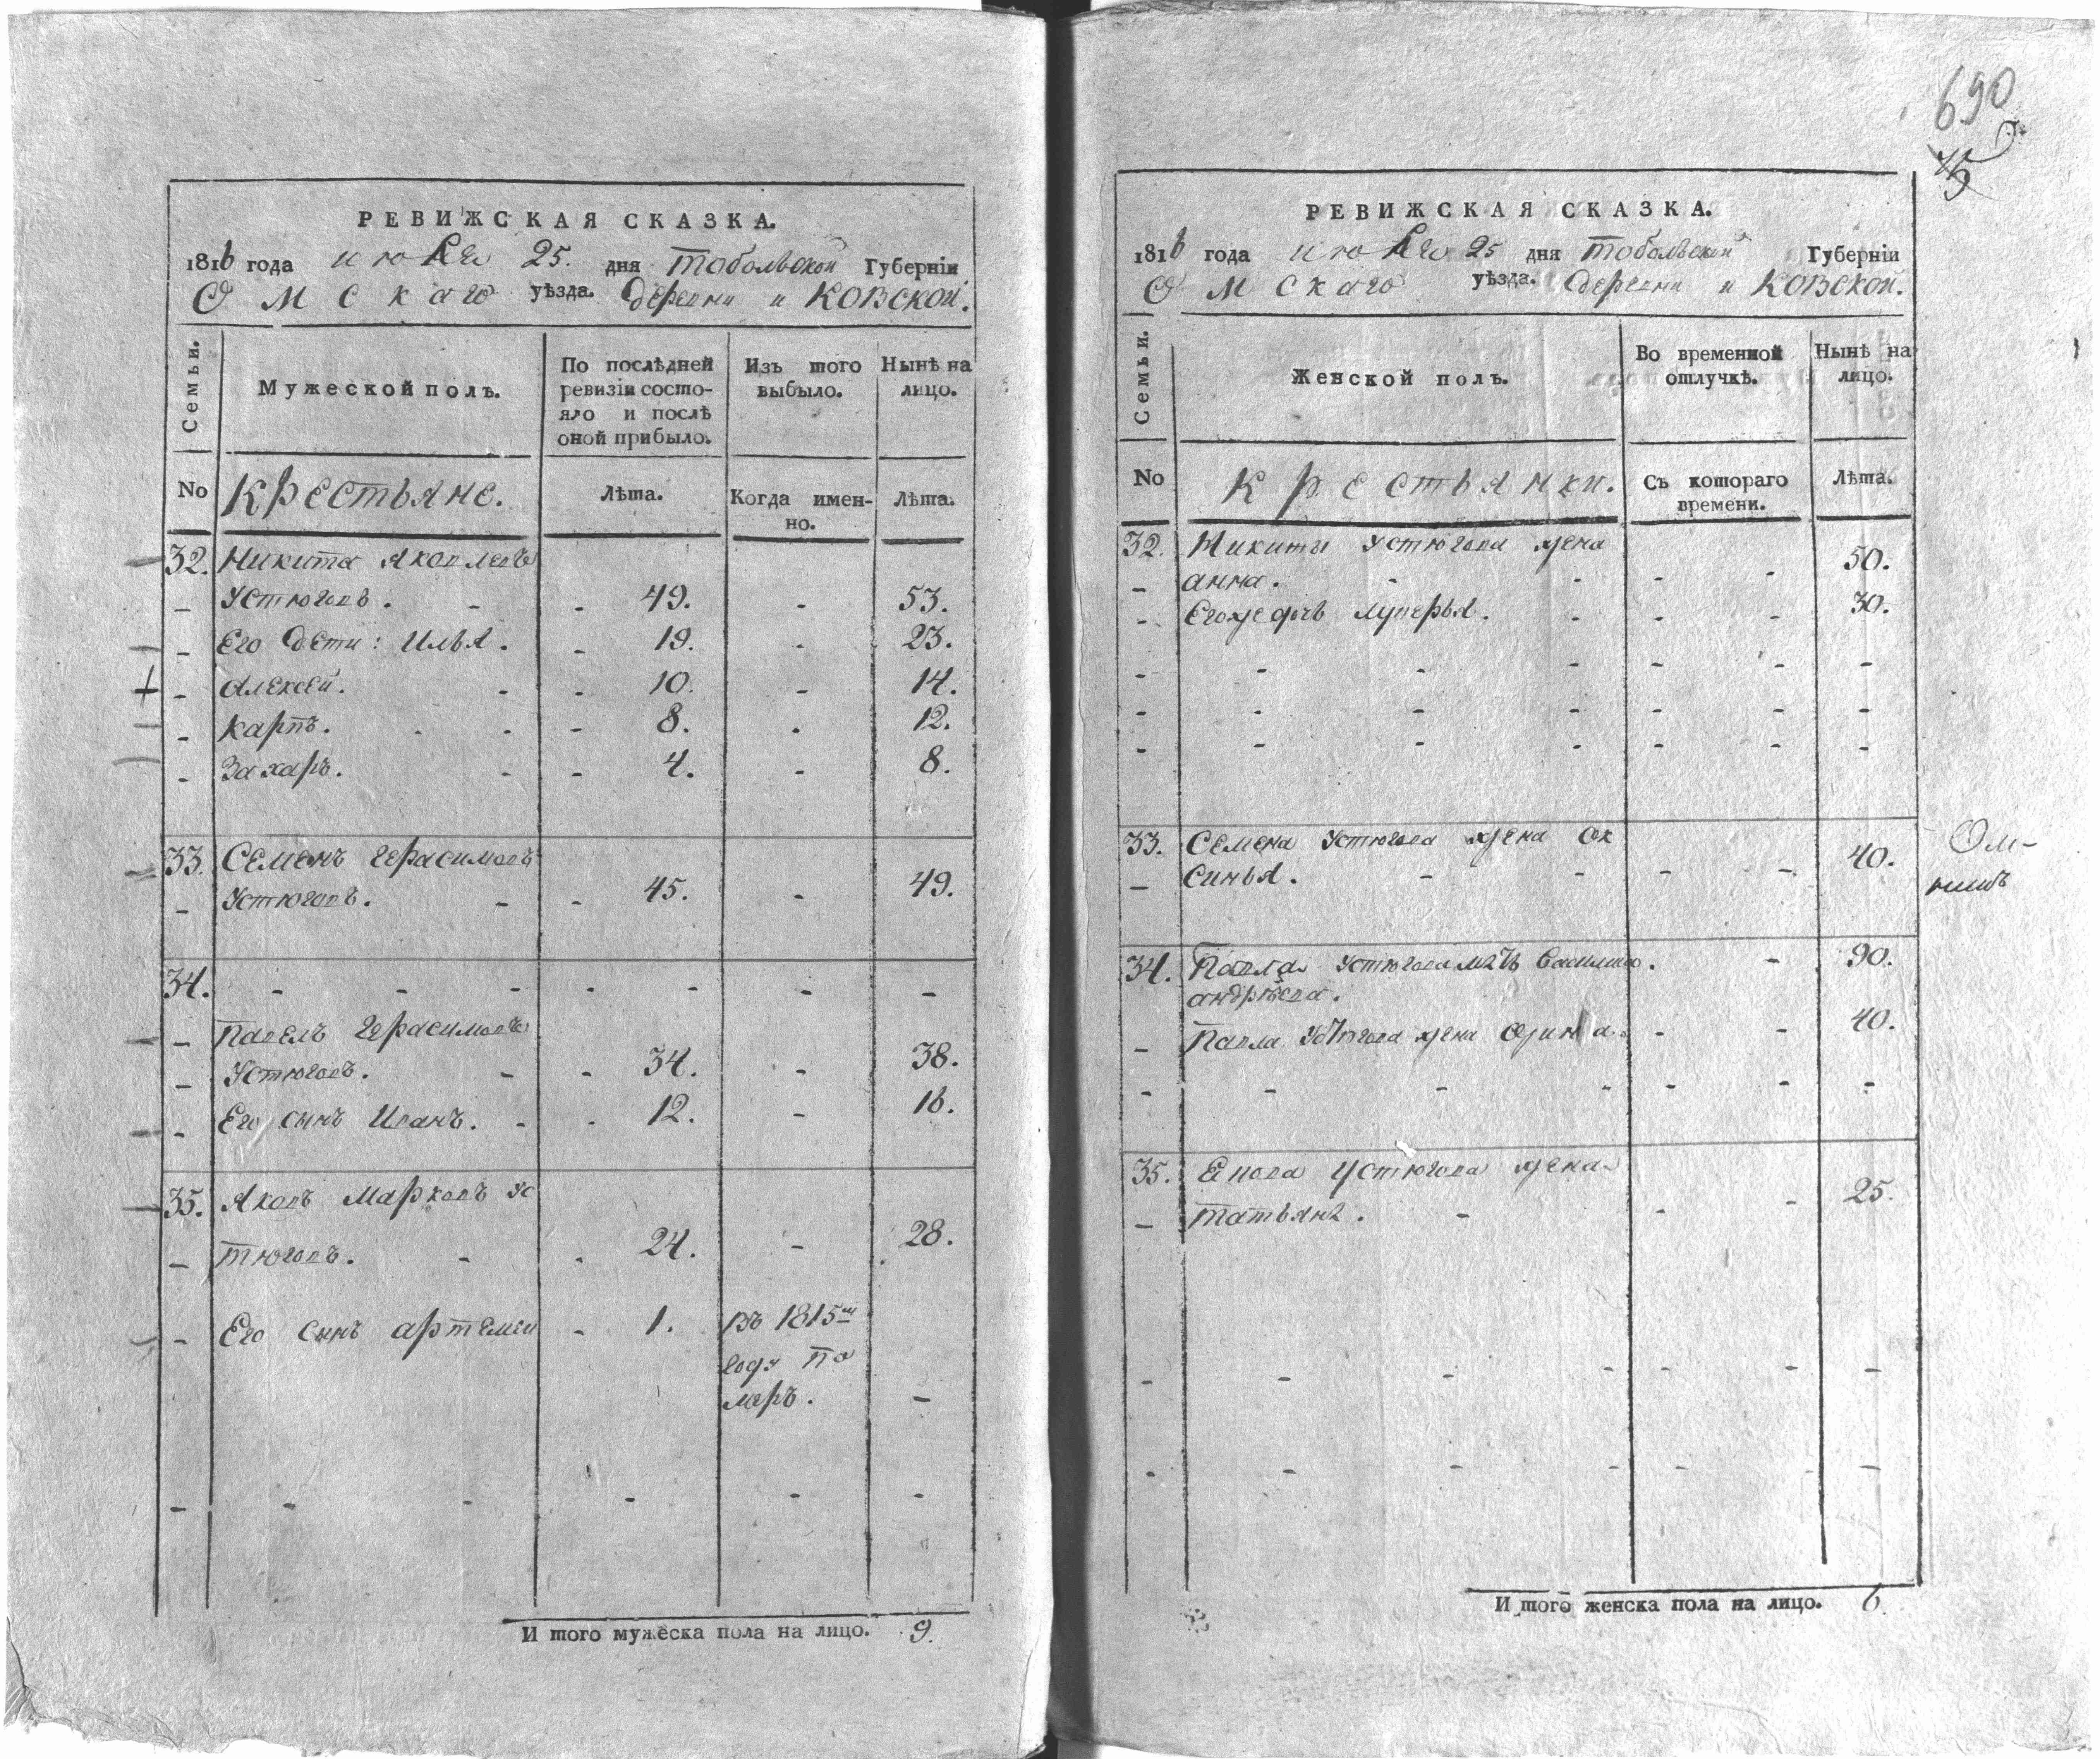 РЕВИЖСКАЯ СКАЗКА.
1816 года июля 25. дня Тобольской Губернiи
Омскаго уѣзда. Деревни иковской.
Семьи.
Мужеской полъ.
По послѣдней
ревизiи состо-
яло и послѣ
оной прибыло.
Изъ того
выбыло.
Нынѣ на
лицо.
No
Крестьяне.
Лѣта.
Когда имен-
но.
Лѣта.
32. Никита Яковлевъ
Устюговъ. 49. 53.
Его дети: Илья. 19. 23.
Алексей. 10. 14.
Карпъ. 8. 12.
Захаръ. 4. 8.
33. Семенъ Герасимовъ
Устюговъ. 45. 49.
34.
Павелъ Герасимовъ
Устюговъ. 34. 38.
Его сынъ Иванъ. 12. 16.
35. Яковъ Марковъ Ус
тюговъ. 24. 28.
Его сынъ артемеи 1. въ 1815м
году по
меръ.
И того мужеска пола на лицо. 9.
690
РЕВИЖСКАЯ СКАЗКА.
1816 года июля 25 дня Тобольской Губернiи
Омскаго уѣзда. Деревни иковской.
Семьи.
Женской полъ.
Во временной
отлучкѣ.
Нынѣ на
лицо.
No
Крестьянки.
Съ котораго
времени.
Лѣта.
32. Никиты Устюгова жена
анна. 50.
Егоже дочь лукерья. 30.
33. Семена Устюгова жена Ок
синья. 40.
34. Павла Устюгова мать Василиса 90.
андрѣева.
Павла Устюгова жена 40.
35. Якова Устюгова жена
татьяна. 25.
И того женска пола на лицо. 6